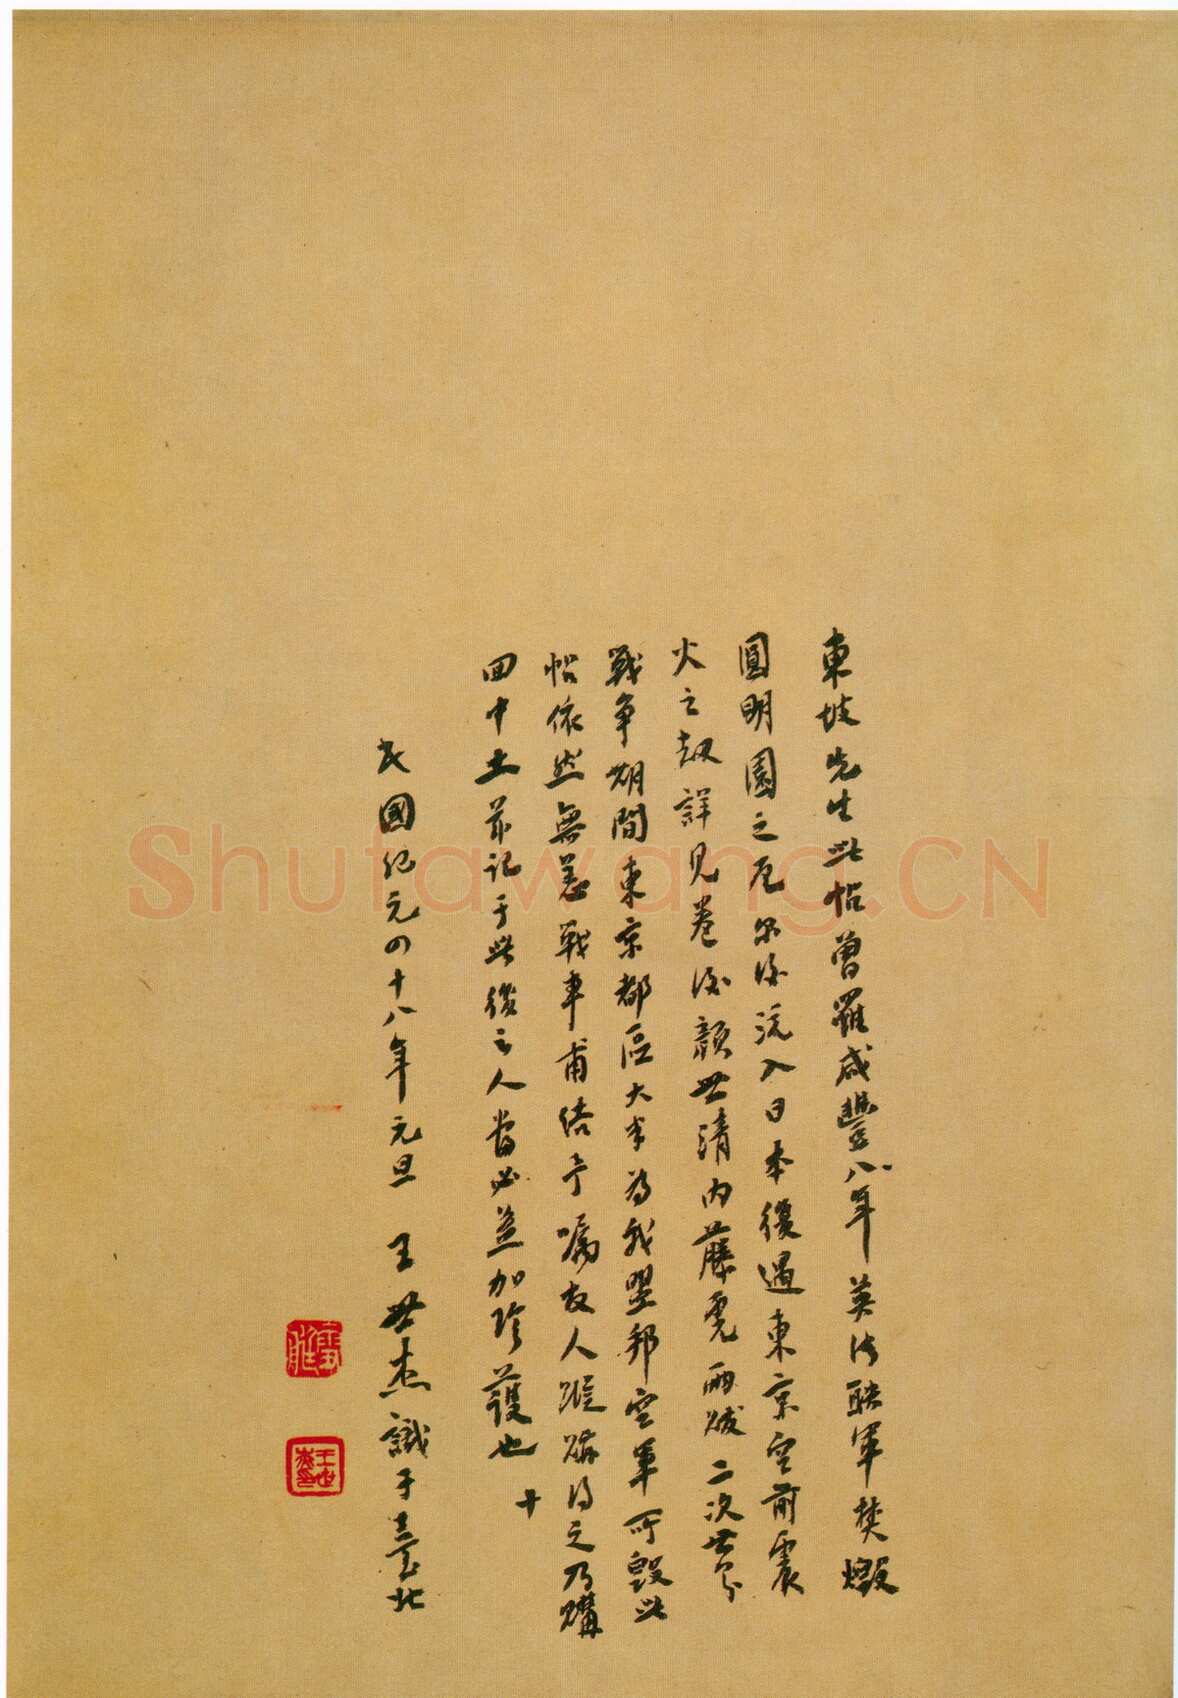 東坡先生此帖曾罹咸豐八年英法聯軍焚燬
圓明園之厄爾後流入日本復遇東京空前震
火之劫詳見卷後顏世清內藤虎兩跋二次世界
戰爭期間東京都區大半為我盟邦空軍所毀此
帖依然無恙戰事甫結予囑友人蹤跡得之乃購
回中土並記于此後之人當必益加珍護也
十
民國紀元四十八年元旦 王世杰識于臺北
Shufawang.CN